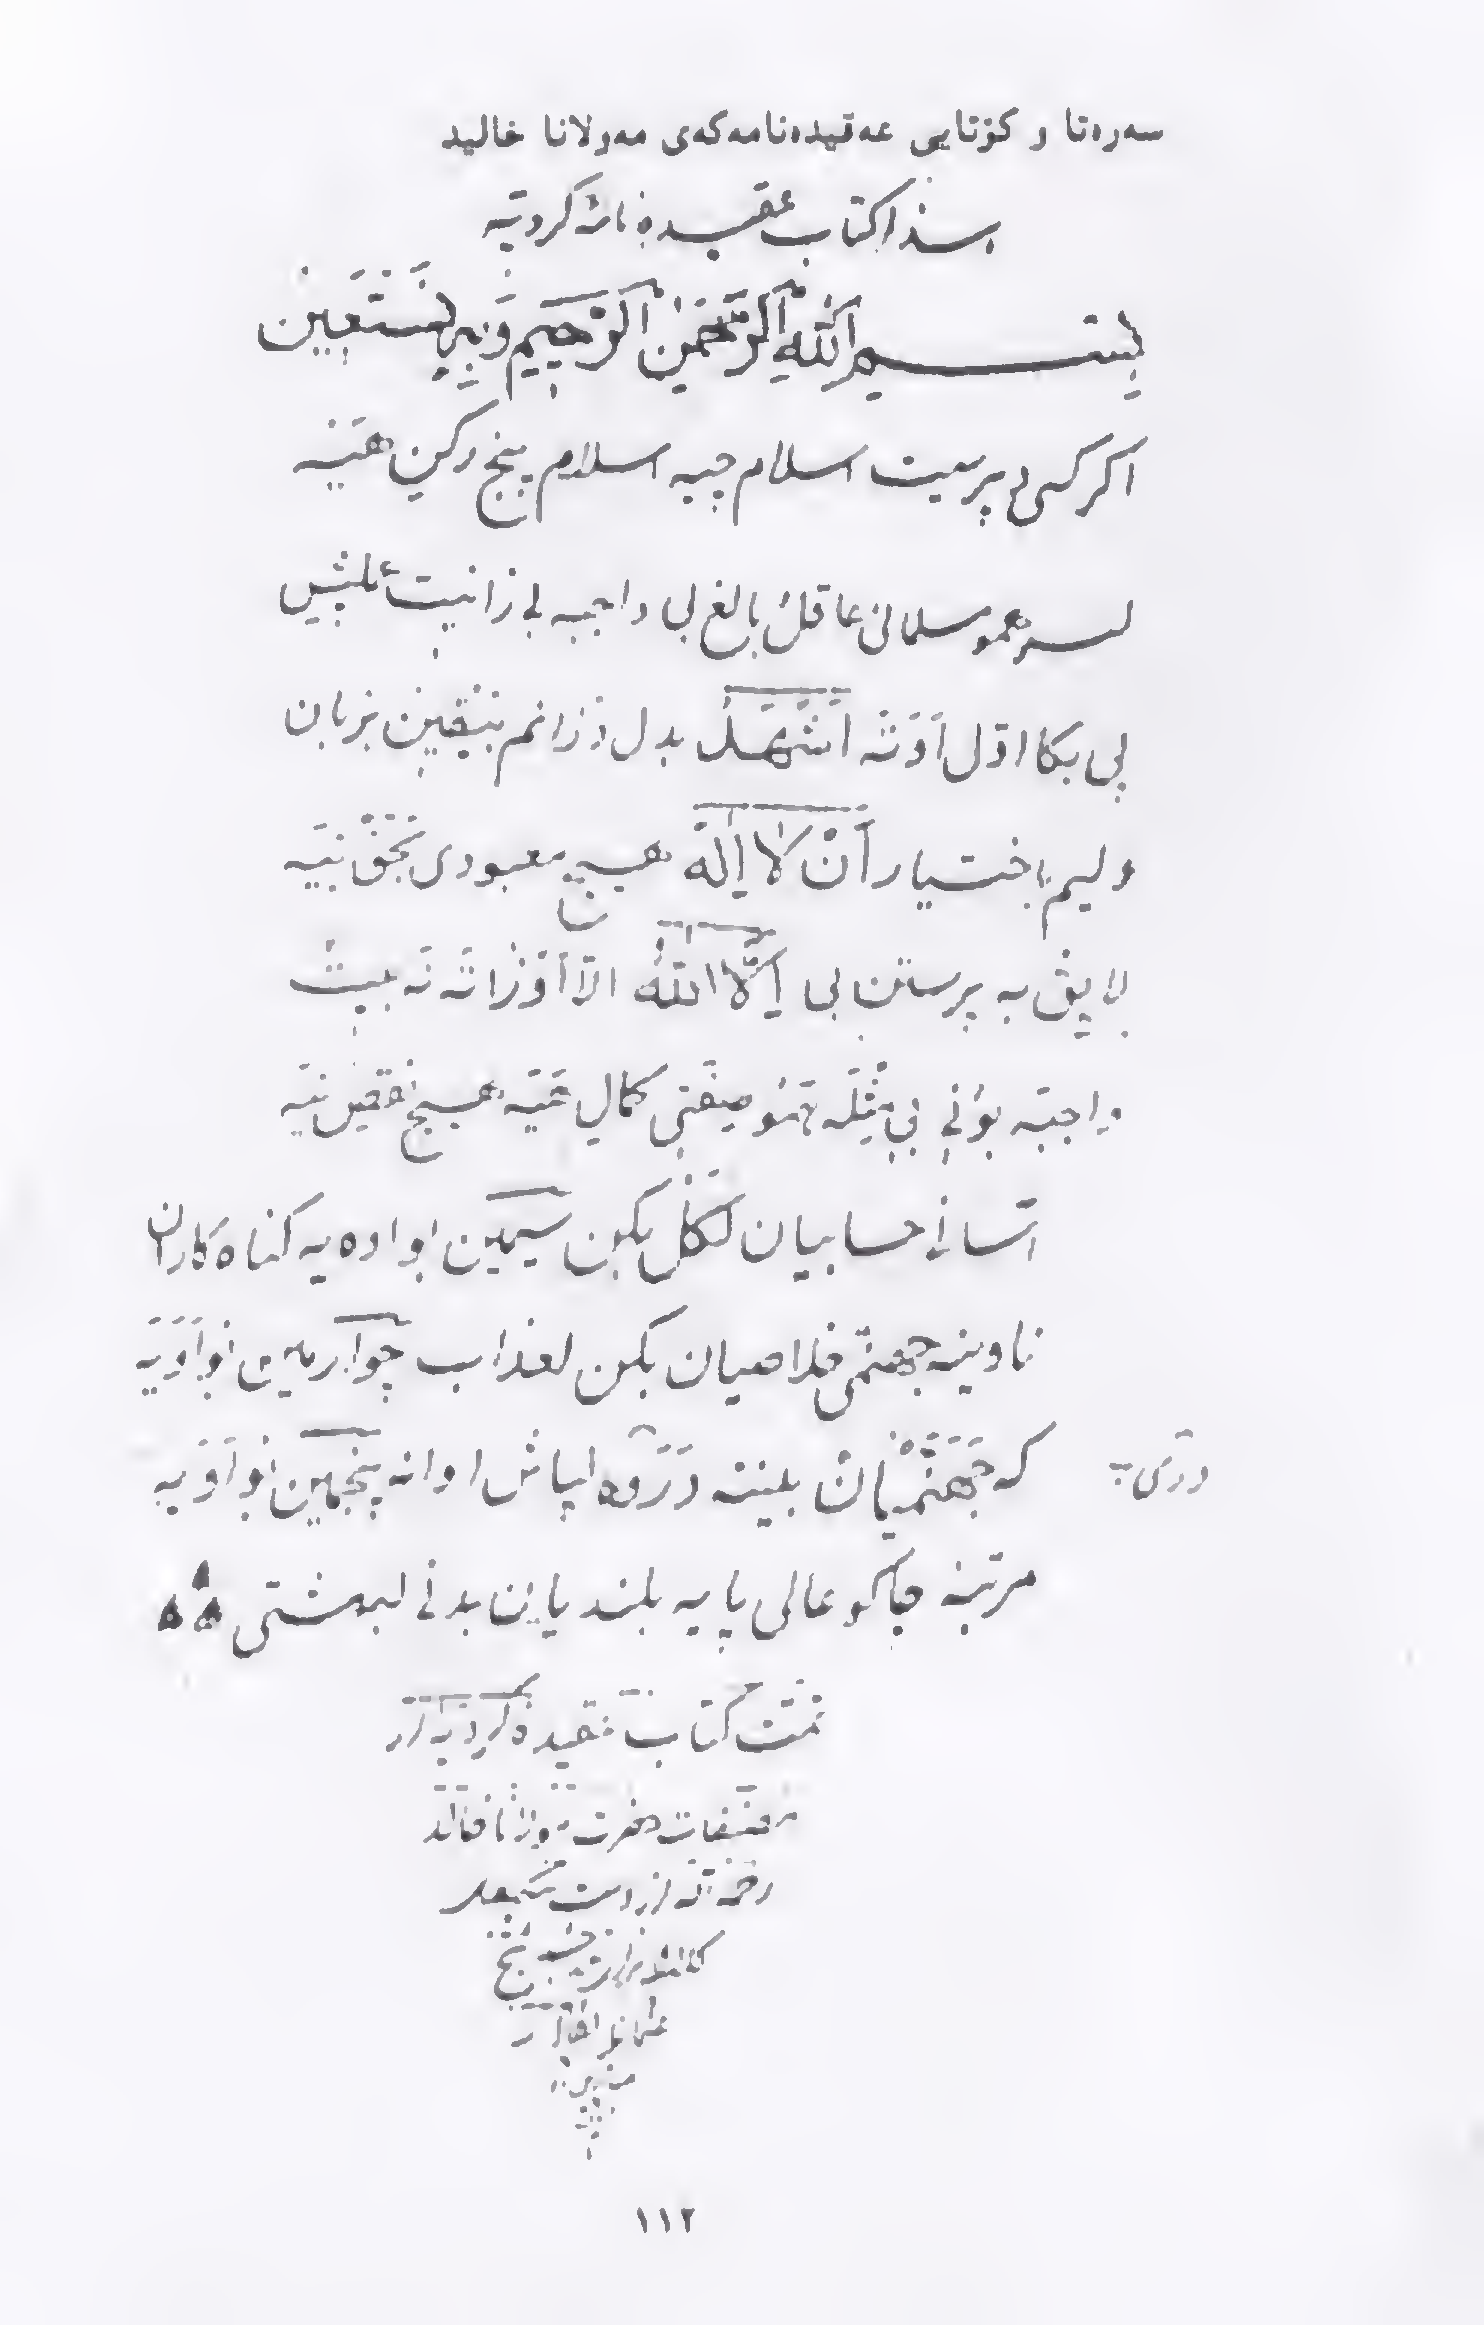 سەرەتا و کۆتایی عەقیدەنامەکەی مەولانا خالید
هذا کتاب عقیده نامهٔ کردیه
بِسْمِ اللّٰهِ الرَّحْمٰنِ الرَّحِیمِ وَبِهِ نَسْتَعِین
اکر کسی پرسیت اسلام چیه اسلام پنج رکین هنیه
لسر همو مسلمانی عاقل بالغ لی واجبه بی زانیت
بی بکا اوّل أَوَنَه اَشْهَدُ بدل دزانم بیقین بزبان
دلیم باختیار أَنْ لَا إِلٰهَ هیچ معبودی بحق نیَه
لایق به پرستن بی إِلَّا اللّٰهُ الّا أَوْ ذاتَه نَه بیت
واجبَه بوُنی بی مِثلَه هَمُو صِفَتی کمالِ هَیَه هیچ نقص نیَه
آسانی حسابیان لکَل بکن سیمین بو اوه یه کناه کاران
ناوینه جهنمی خلاصیان بکن لعذاب چوارمین بوأَوَیه
که جَهَنَّمْیان بلینه دَرَوه لپاش اوانه پنجمین بو أَوَیه
مرتبه چاکو عالی پایه بلند یان بدنی لبهشتی
تمت کتاب عقیده کردیه از
مصنفات حضرت مولانا خالد
رحمه الله از دست
١١٢